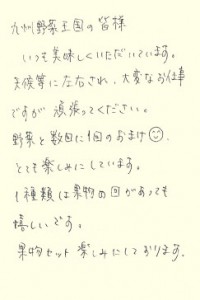 九州野菜王国の皆様
いつも美味しくいただいています。
天候等に左右され、大変なお仕事
ですが 頑張ってください。
野菜と数回に1回のおまけ☺、
とても楽しみにしています。
1種類は果物の回があっても
嬉しいです。
果物セット 楽しみにしております。